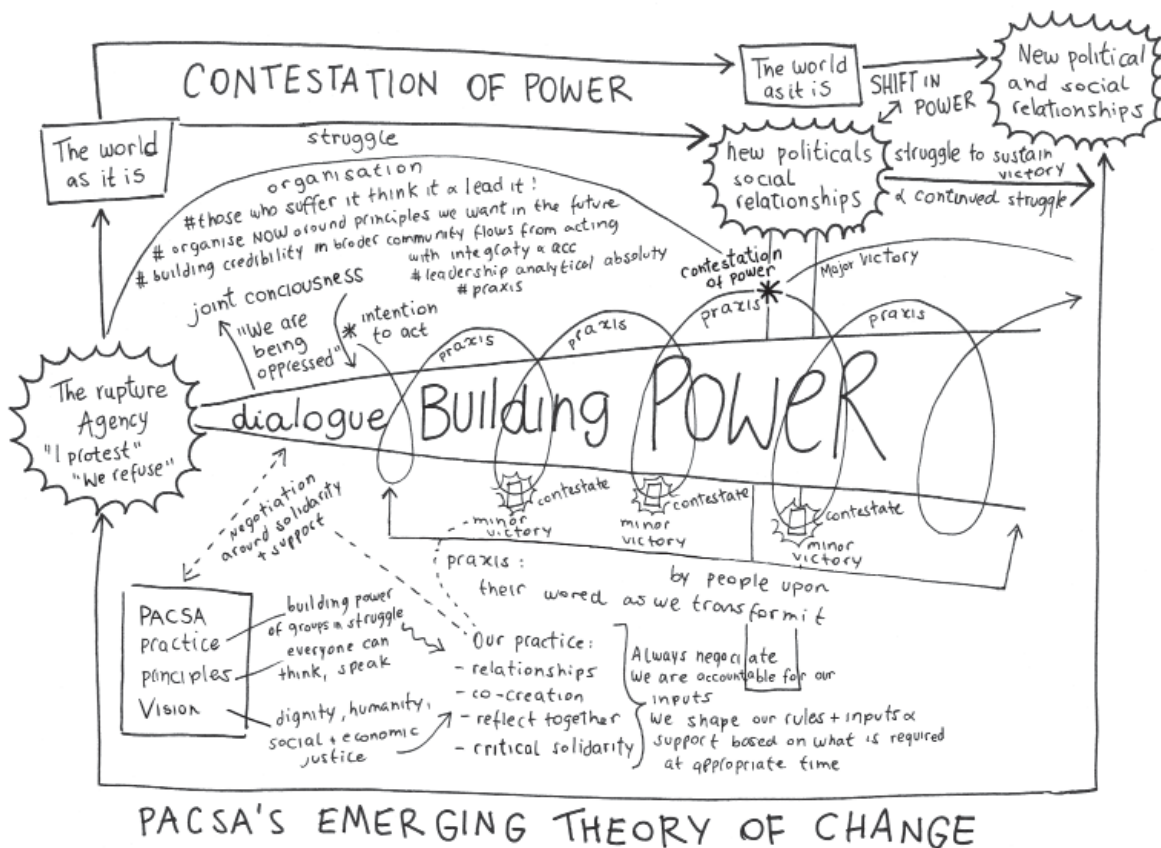 CONTESTATION OF POWER
The world
as it is
SHIFT IN
POWER
New political
and social
relationships
The world
as it is
struggle
new politicals
social
relationships
struggle to sustain
victory
∝ continued struggle
organisation
#those who suffer it think it ∝ lead it!
# organise NOW around principles we want in the future
# building credibility in broder community flows from acting
with integraty ∝ acc
#leadership analytical absoluty
# praxis
contestation
of power
Major victory
joint conciousness
"We are
being
oppressed"
* intention
to act
praxis
praxis
praxis
praxis
The rupture
Agency
"I protest"
"We refuse"
dialogue Building POWER
contestate
contestate
contestate
minor
victory
minor
victory
minor
victory
Negotiation
around solidarity
+ support
praxis:
by people upon
their wored as we transformit
PACSA
practice
principles
Vision
building power
of groups in struggle
everyone can
think, speak
dignity, humanity,
social + economic
justice
Our practice:
- relationships
- co-creation
- reflect together
- critical solidarity
Always negociate
We are accountable for our
inputs
We shape our rules + inputs ∝
support based on what is required
at appropriate time
PACSA'S EMERGING THEORY OF CHANGE